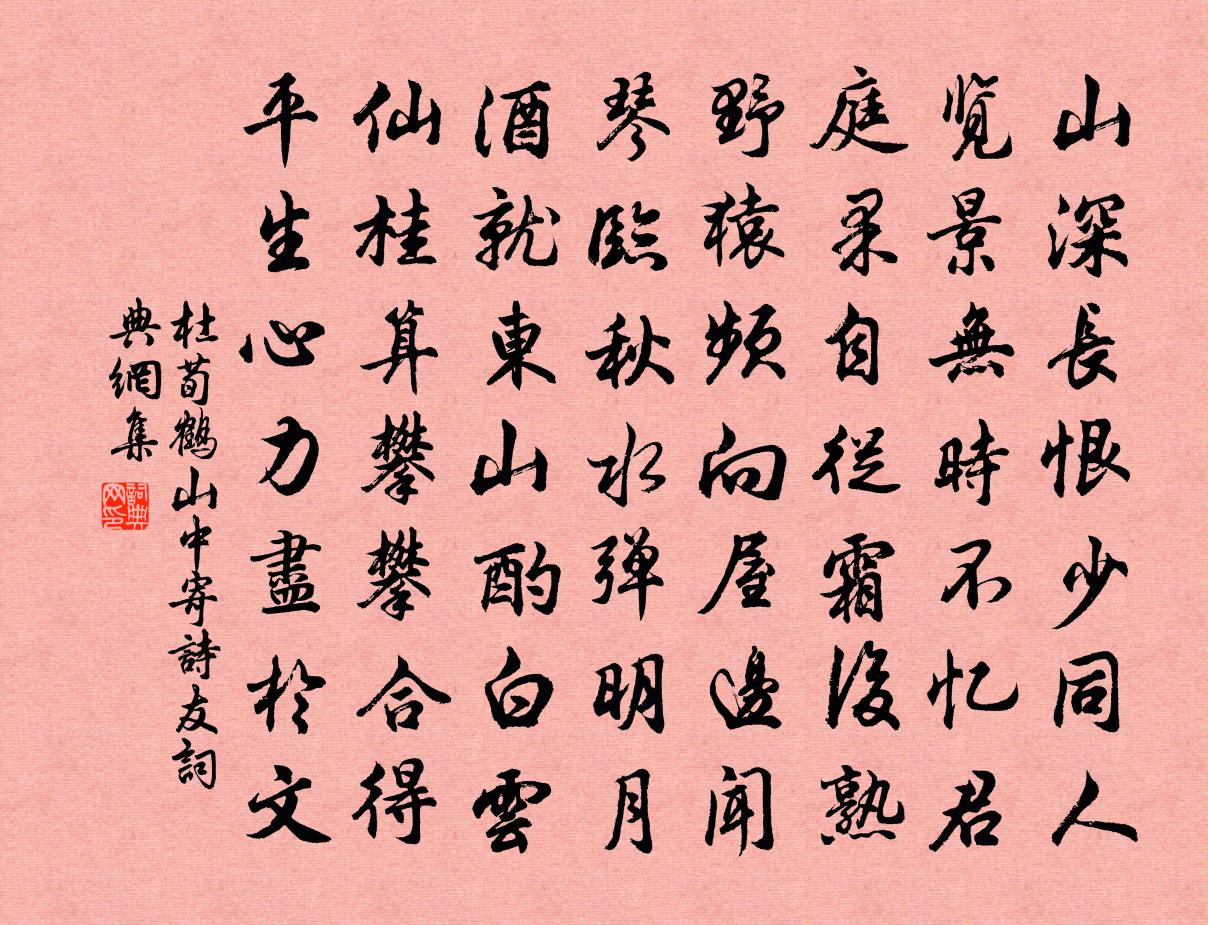 山深長恨少同人
览景無時不忆君
庭果自從霜後熟
野猿頻向屋邊聞
琴臨秋水弹明月
酒就東山酌白雲
仙桂算攀攀合得
平生心力盡於文
杜荀鶴山中寄詩友詞
典網集
詞典
网印